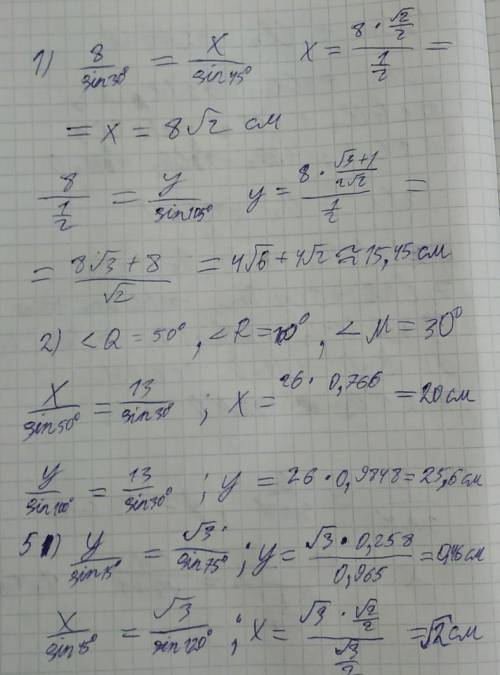 1) 8/sin30° = x/sin45°   x = (8 · √2/2)/(1/2) =
= x = 8√2 см
8/(1/2) = y/sin105°   y = (8 · (√3+1)/(2√2))/(1/2) =
= (8√3+8)/√2 = 4√6+4√2 ≈ 15,45 см
2) <Q = 50°, <R = 100°, <M = 30°
x/sin50° = 13/sin30° ; x = 26 · 0,766 = 20 см
y/sin100° = 13/sin30° ; y = 26 · 0,9848 = 25,6 см
5) y/sin15° = √3/sin75° ; y = (√3 · 0,258)/0,965 = 0,46 см
x/sin 5° = √3/sin120° ; x = (√3 · √2/2)/(√3/2) = √2 см